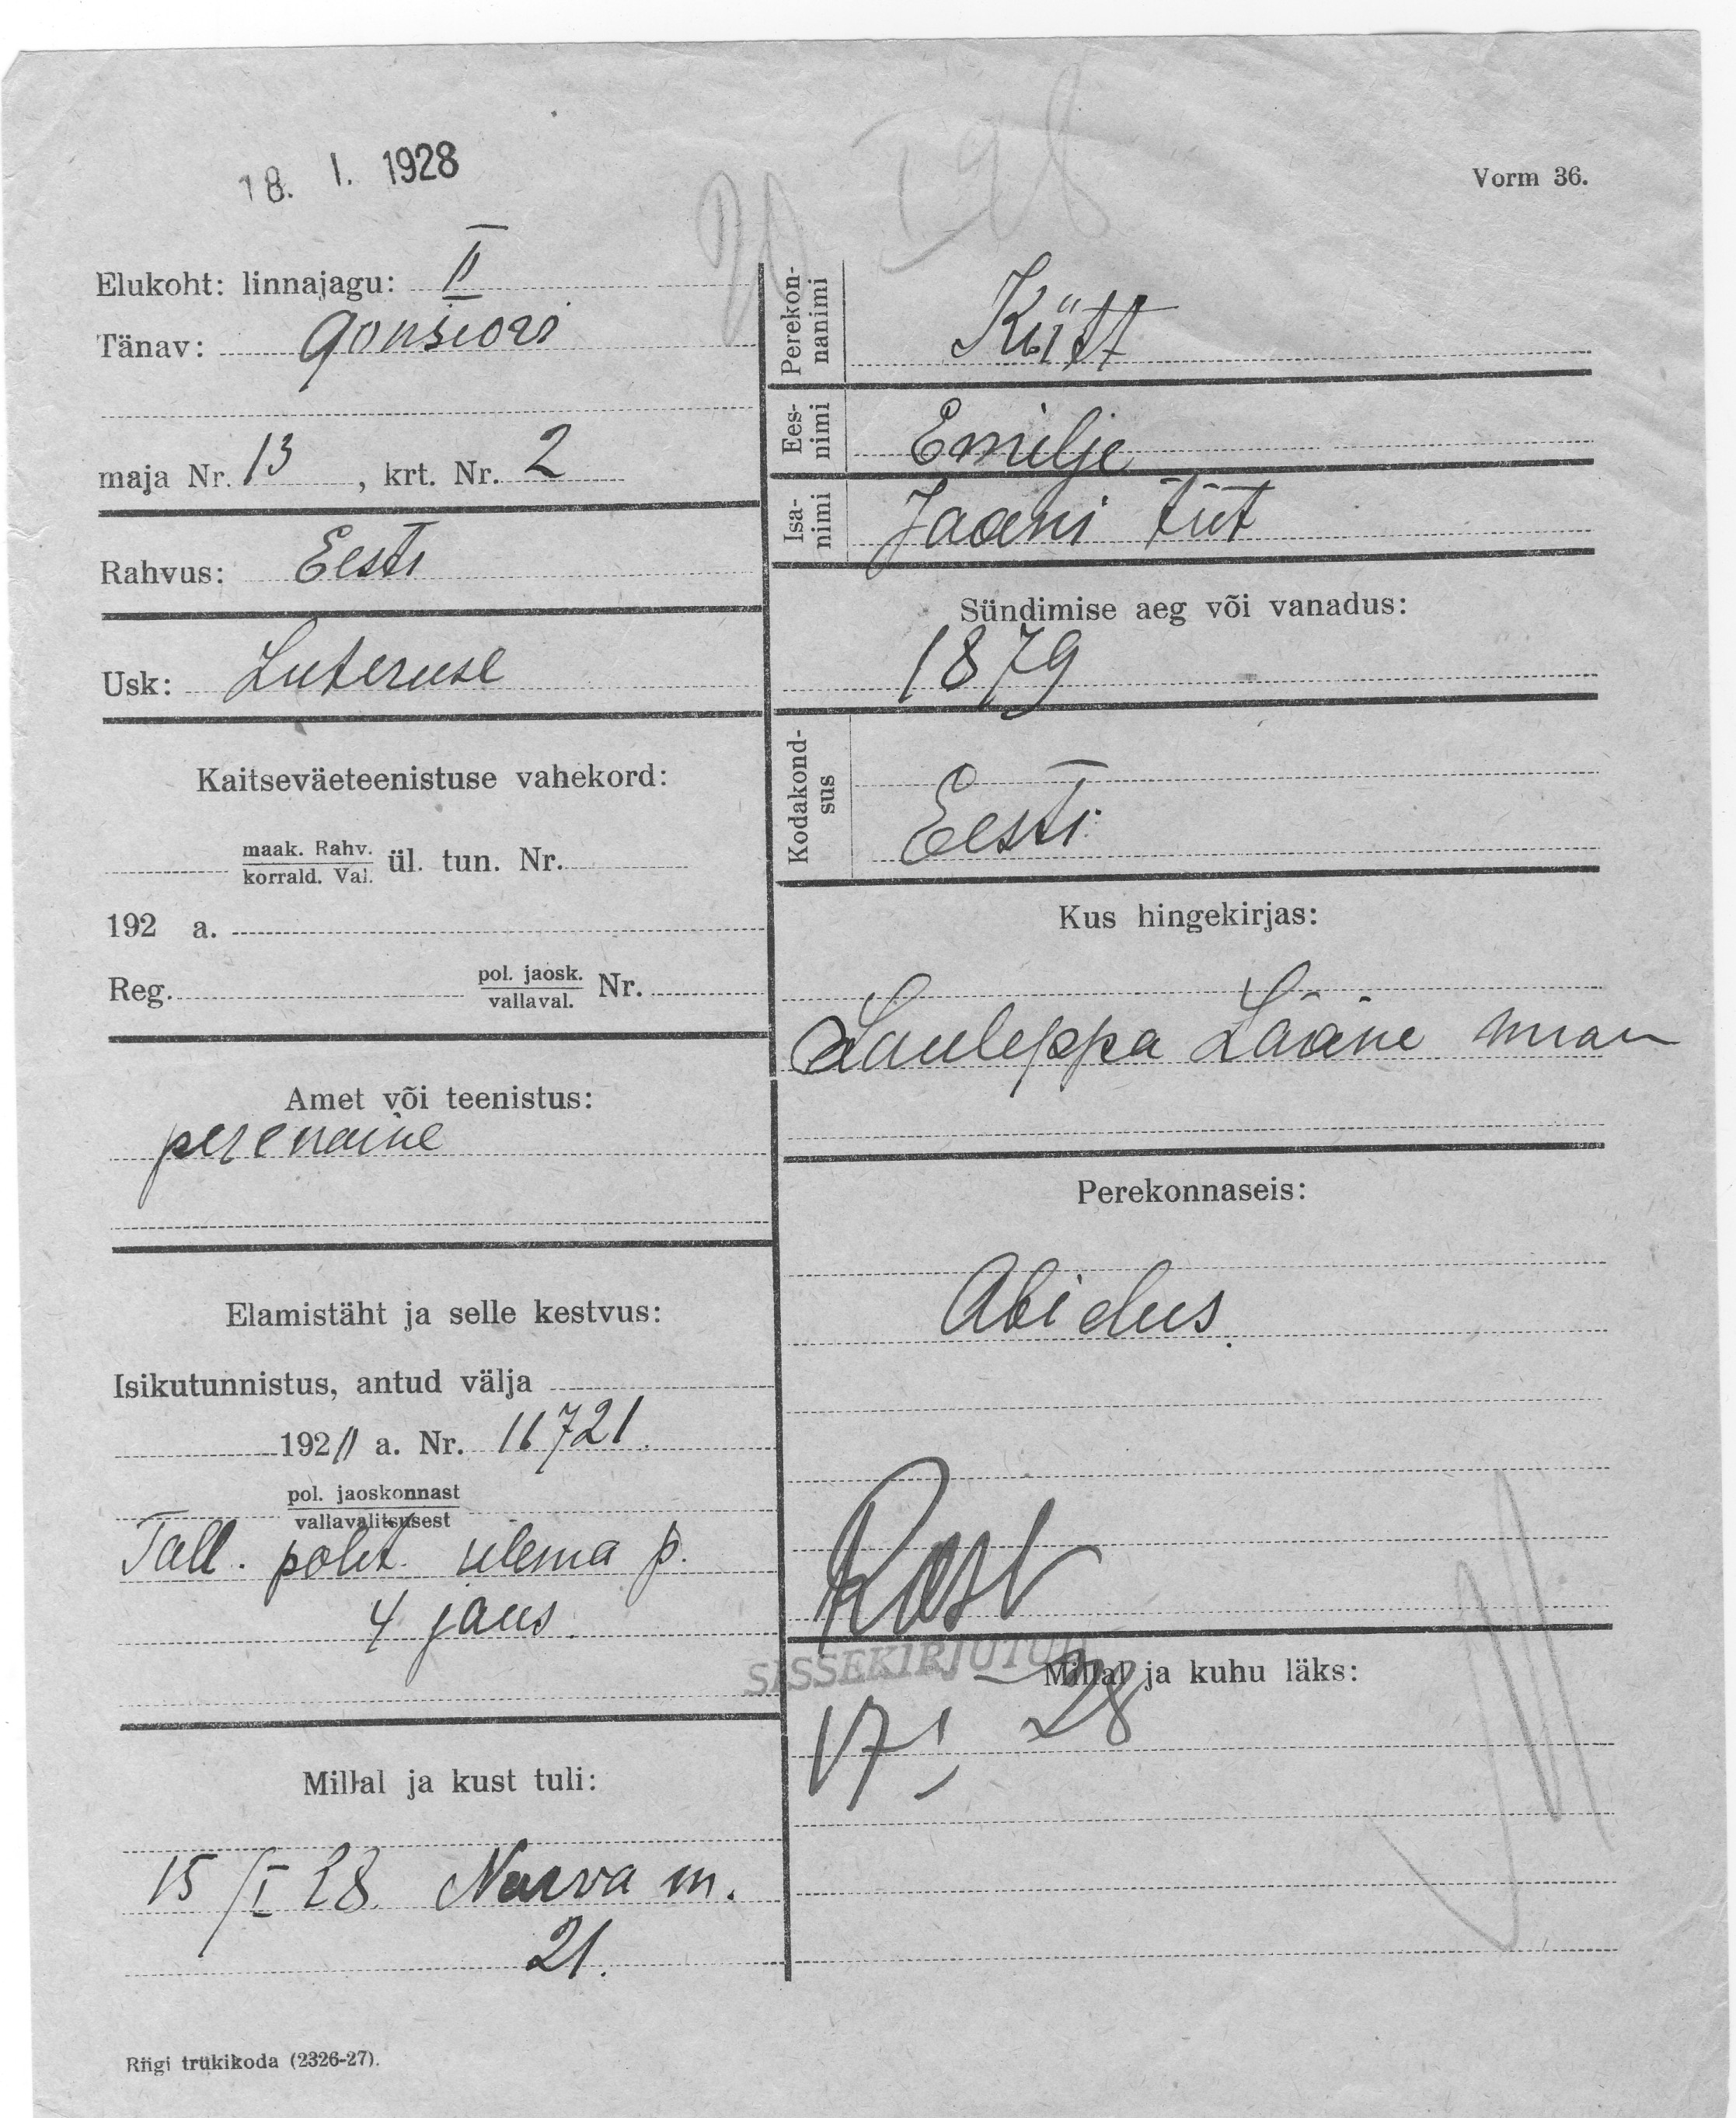 18. I. 1928
Vorm 36.
Elukoht: linnajagu: II
Tänav: Gonsiori
maja Nr. 13, krt. Nr. 2
Rahvus: Eesti
Usk: Luteruse
Kaitseväeteenistuse vahekord:
maak. Rahv.
korrald. Val. ül. tun. Nr.
192 a.
Reg. pol. jaosk.
vallaval. Nr.
Amet või teenistus:
perenaine
Elamistäht ja selle kestvus:
Isikutunnistus, antud välja
192 a. Nr. 11721.
pol. jaoskonnast
vallavalitsusest
Tall. polit. ulema p.
4 jaus.
Millal ja kust tuli:
15/I 28. Narva m.
21.
Riigi trükikoda (2326-27).
Perekon-
nanimi
Kütt
Ees-
nimi
Emilje
Isa-
nimi
Jaani tüt
Sündimise aeg või vanadus:
1879
Kodakond-
sus
Eesti
Kus hingekirjas:
Lääne maa
Perekonnaseis:
Abielus.
SISSEKIRJUTUD
Millal ja kuhu läks:
17 I 28